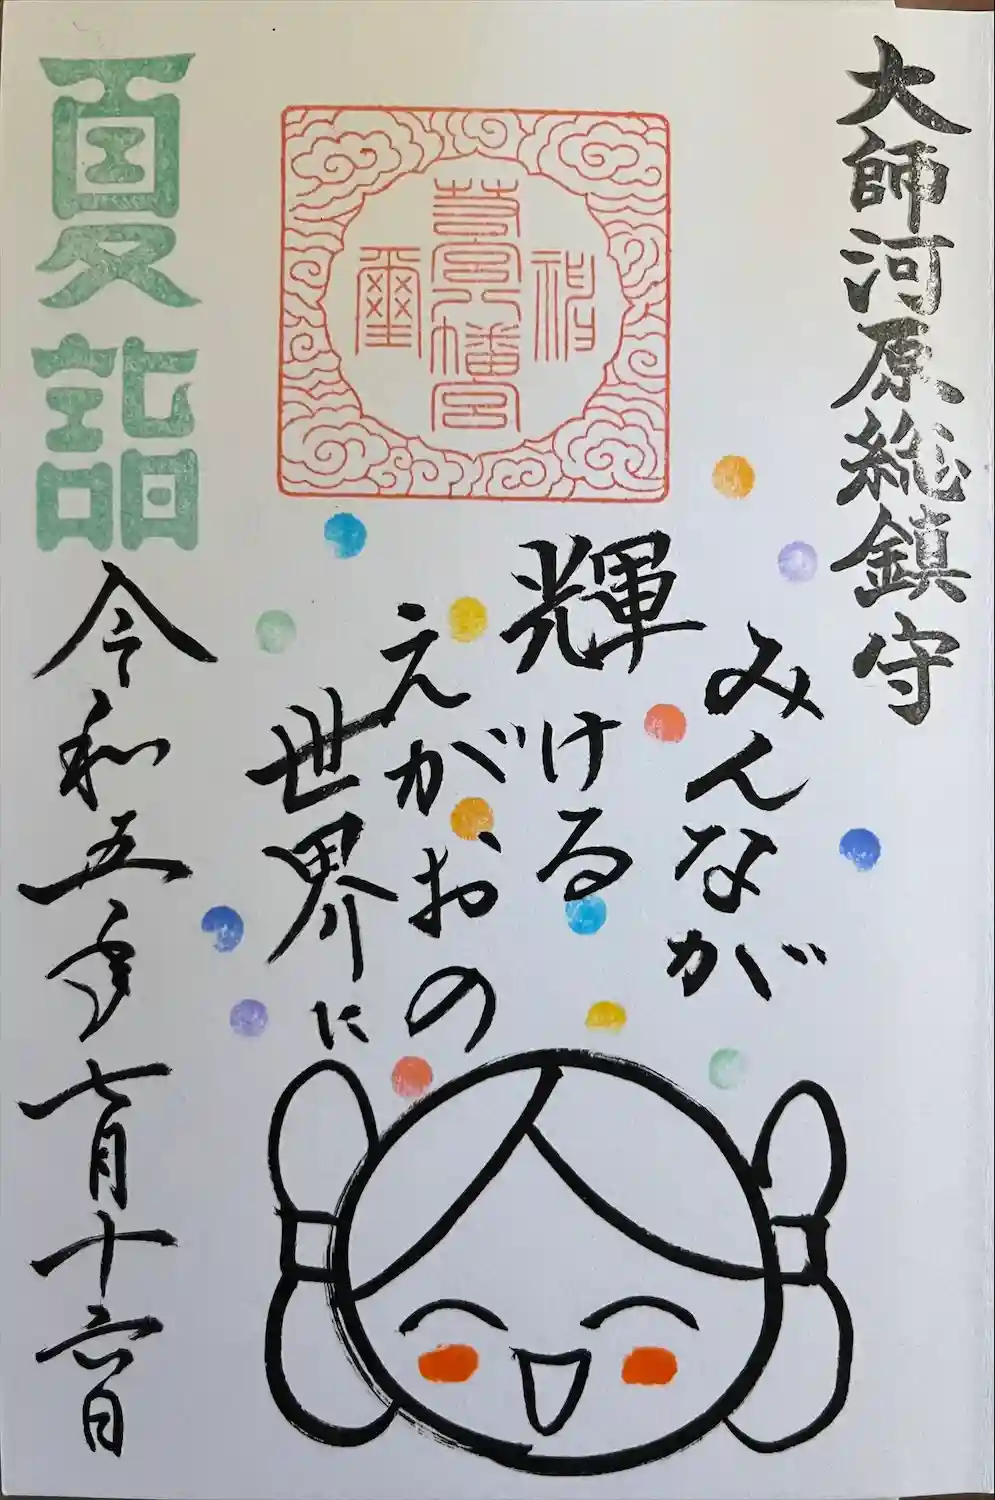 大師河原総鎮守
みんなが
輝ける
えがおの
世界に
若宮八幡宮
夏詣
令和五年七月十六日